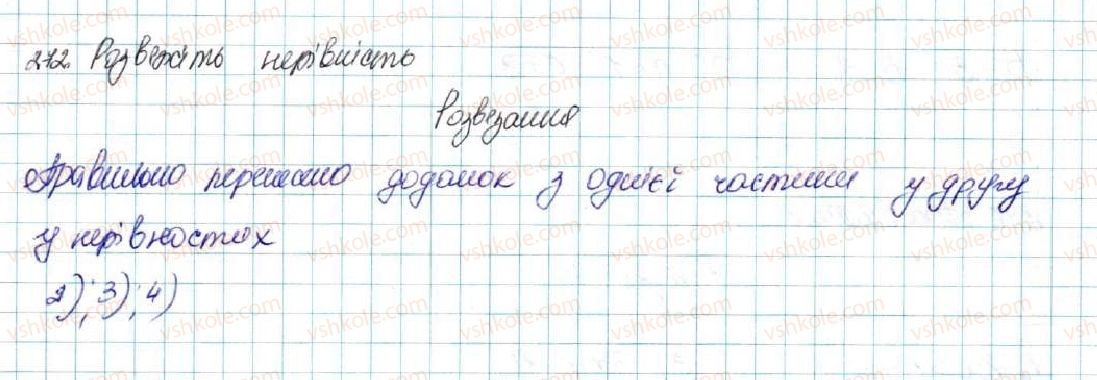 212. Розвежіть нерівність
Розвезання
Правильно перенесено доданок з однієї частини у другу
у нерівностях
2); 3); 4)